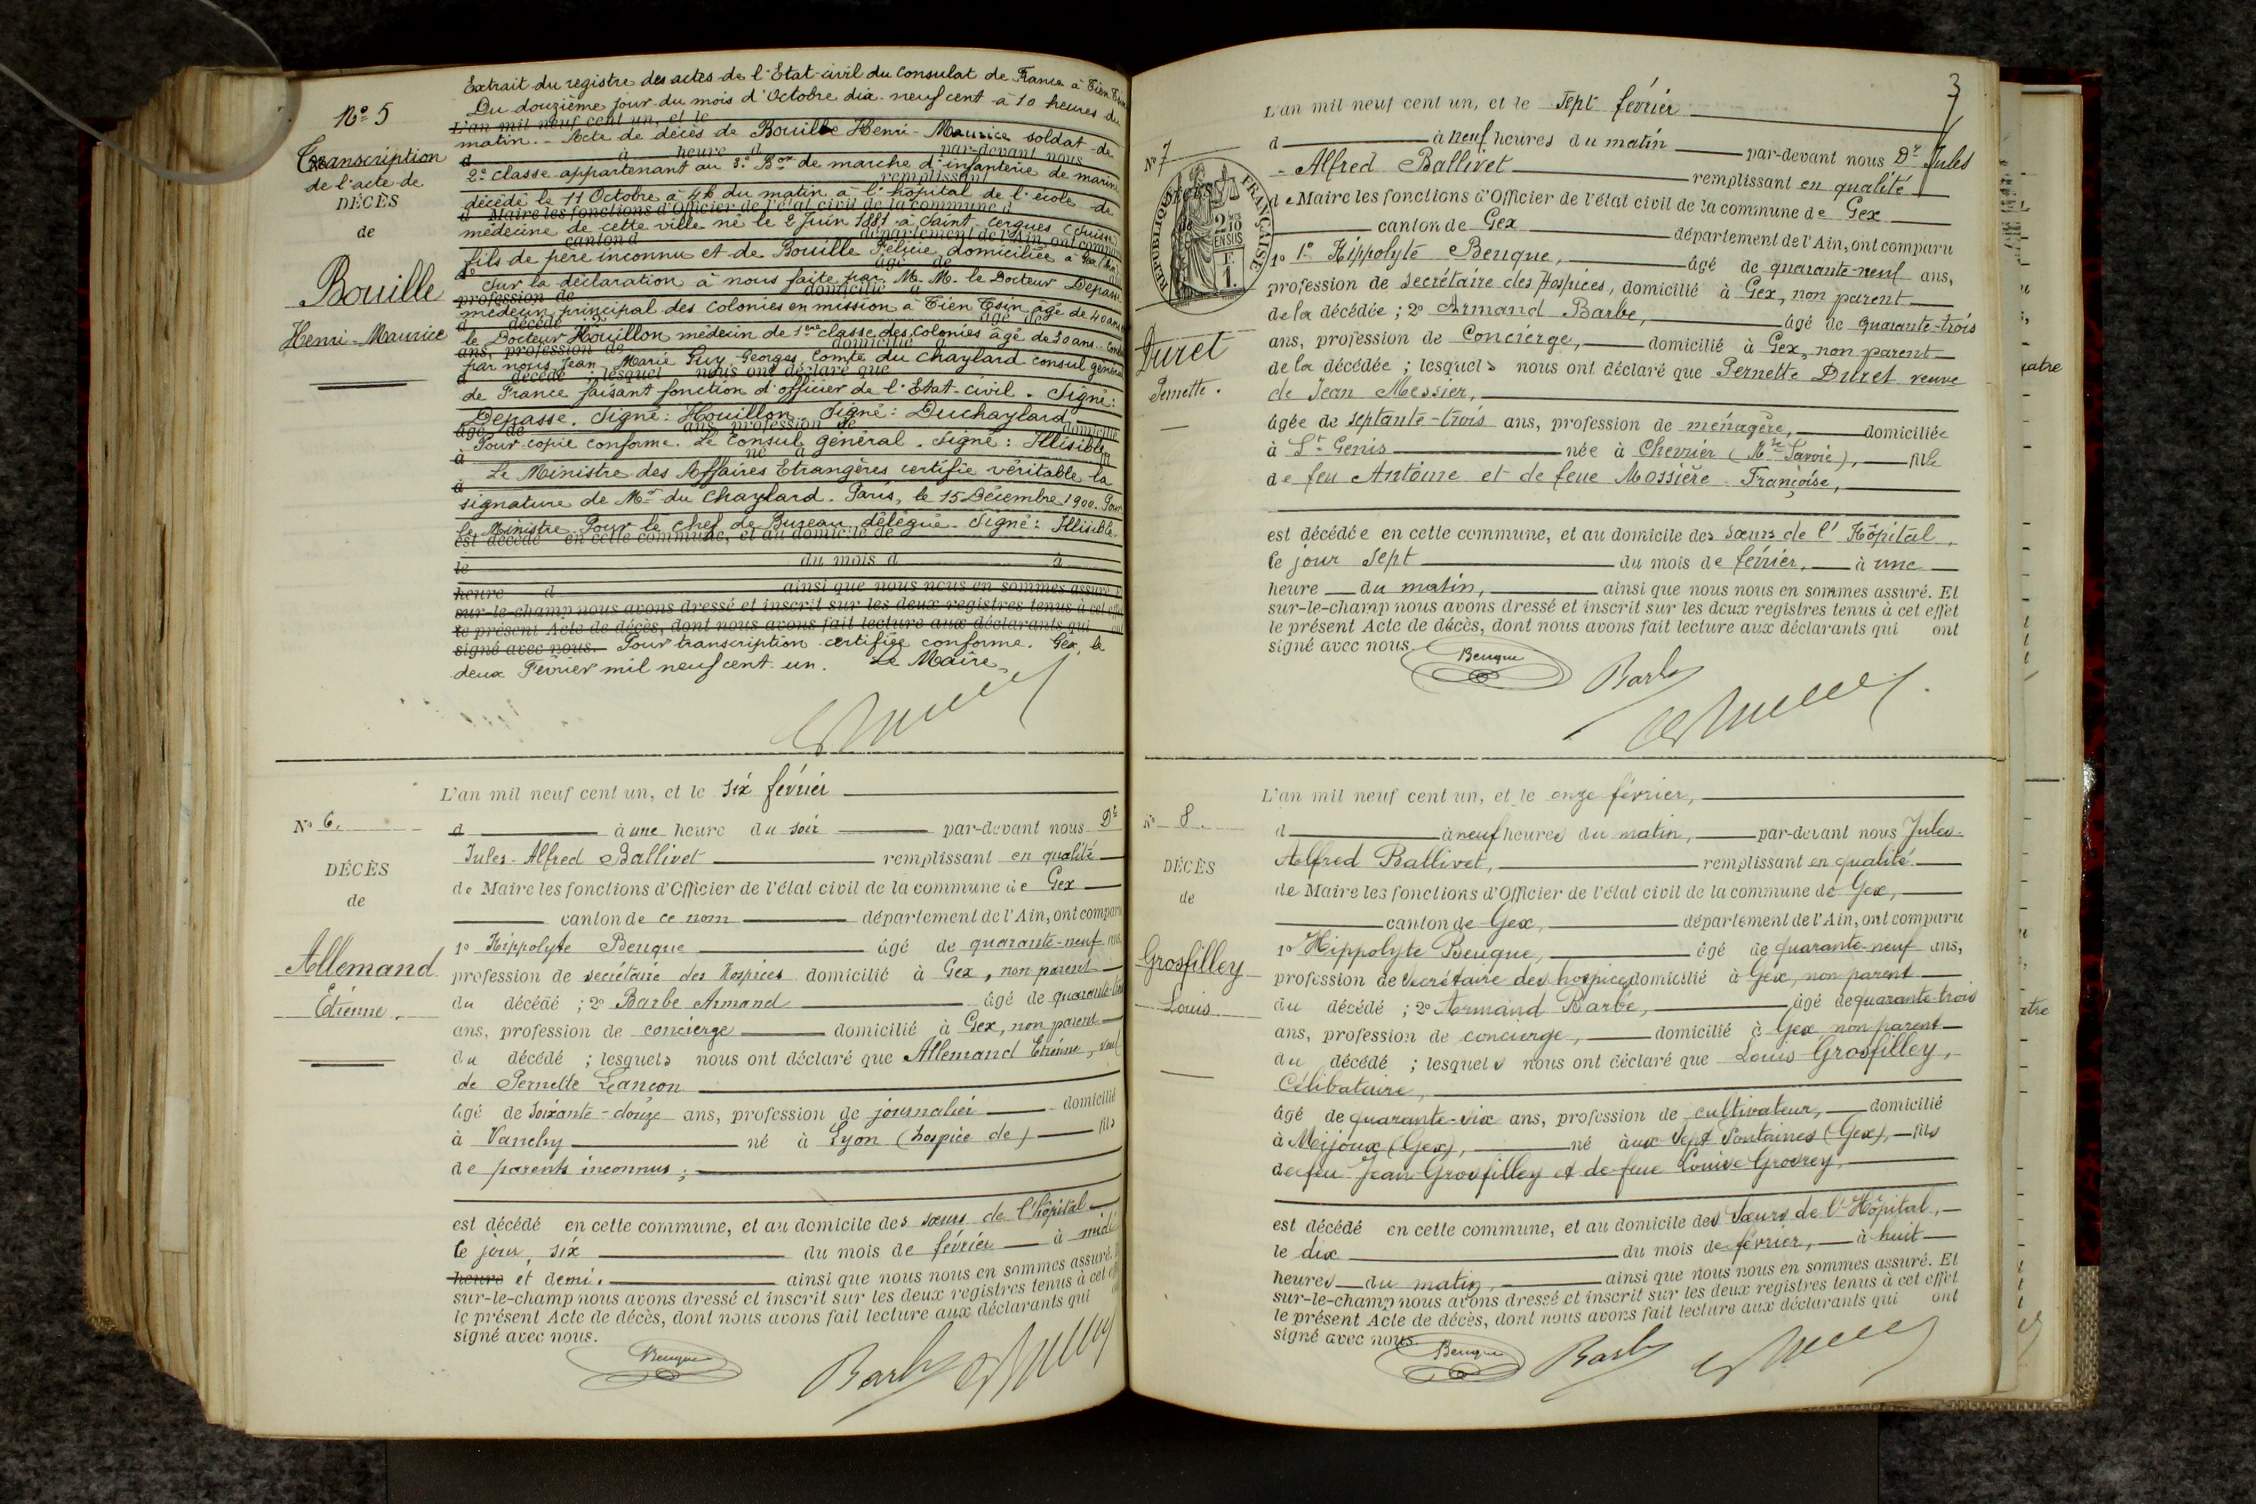 Nº 5
Transcription
de l'acte de
DÉCÈS
de
Bouille
Henri-Maurice
Extrait du registre des actes de l'Etat-civil du Consulat de France à Tien Tsin
Du douzième jour du mois d'Octobre dix-neuf cent à 10 heures du
L'an mil neuf cent un, et le
matin. - Acte de décès de Bouille Henri-Maurice soldat de
d à heure d par-devant nous
2e classe appartenant au 3e Bon de marche d'infanterie de marine
remplissant
décédé le 11 Octobre à 4h du matin à l'hôpital de l'école de
d Maire les fonctions d'Officier de l'état civil de la commune d
médecine de cette ville né le 2 Juin 1881 à Saint Cergues (Suisse)
canton d département de l'Ain, ont comparu
fils de père inconnu et de Bouille Félicie domiciliée à Gex (Ain)
âgé de
Sur la déclaration à nous faite par M.M. le Docteur Depasse
profession de domicilié à
médecin principal des Colonies en mission à Tien Tsin âgé de 40 ans
d décédé ; 2º âgé de
le Docteur Houillon médecin de 1ère classe des Colonies âgé de 30 ans.
ans, profession de domicilié à
par nous Jean Marie Guy Georges Comte du Chaylard consul général
d décédé ; lesquel nous ont déclaré que
de France faisant fonction d'officier de l'Etat-civil. Signé:
Depasse. Signé: Houillon. Signé: Duchaylard
âgé de ans, profession de domicilié
Pour copie conforme. Le Consul général. Signé: Illisible
à né à
Le Ministre des Affaires Etrangères certifie véritable la
à
signature de Mr du Chaylard. Paris, le 15 Décembre 1900. Pour
le Ministre. Pour le chef de Bureau délégué. Signé: Illisible.
est décédé en cette commune, et au domicile de
le du mois d à
heure d ainsi que nous nous en sommes assuré
sur-le-champ nous avons dressé et inscrit sur les deux registres tenus à cet effet
le présent Acte de décès, dont nous avons fait lecture aux déclarants qui
signé avec nous. Pour transcription certifiée conforme. Gex, le
deux Février mil neuf cent un. Le Maire,
Nº 6.
DÉCÈS
de
Allemand
Etienne.
L'an mil neuf cent un, et le six février
d à une heure du soir par-devant nous Dr
Jules-Alfred Ballivet remplissant en qualité
de Maire les fonctions d'Officier de l'état civil de la commune de Gex
canton de ce nom département de l'Ain, ont comparu
1º Hippolyte Benque âgé de quarante-neuf ans,
profession de secrétaire des Hospices domicilié à Gex, non parent
du décédé ; 2º Barbe Armand âgé de quarante-trois
ans, profession de concierge domicilié à Gex, non parent
du décédé ; lesquels nous ont déclaré que Allemand Etienne, veuf
de Pernette Lançon
âgé de soixante-douze ans, profession de journalier domicilié
à Vanchy né à Lyon (hospice de) fils
de parents inconnus ;
est décédé en cette commune, et au domicile des sœurs de l'hôpital
le jour six du mois de février à midi
heure et demi. ainsi que nous nous en sommes assuré.
sur-le-champ nous avons dressé et inscrit sur les deux registres tenus à cet
le présent Acte de décès, dont nous avons fait lecture aux déclarants qui
signé avec nous.
Benque Barbe
3
Nº 7
RÉPUBLIQUE FRANÇAISE
2/10
EN SUS
1F.
Duret
Pernette.
L'an mil neuf cent un, et le sept février
d à neuf heures du matin par-devant nous Dr Jules
Alfred Ballivet remplissant en qualité
de Maire les fonctions d'Officier de l'état civil de la commune de Gex
canton de Gex département de l'Ain, ont comparu
1º 1º Hippolyte Benque, âgé de quarante-neuf ans,
profession de secrétaire des Hospices, domicilié à Gex, non parent
de la décédée ; 2º Armand Barbe, âgé de quarante-trois
ans, profession de concierge, domicilié à Gex, non parent
de la décédée ; lesquels nous ont déclaré que Pernette Duret veuve
de Jean Messier,
âgée de septante-trois ans, profession de ménagère, domiciliée
à St Genis née à Chevrier (Hte Savoie), fille
de feu Antoine et de feue Mossière Françoise,
est décédée en cette commune, et au domicile des sœurs de l'Hôpital,
le jour sept du mois de février, à une
heure du matin, ainsi que nous nous en sommes assuré. Et
sur-le-champ nous avons dressé et inscrit sur les deux registres tenus à cet effet
le présent Acte de décès, dont nous avons fait lecture aux déclarants qui ont
signé avec nous.
Benque Barbe
Nº 8.
DÉCÈS
de
Grosfilley
Louis
L'an mil neuf cent un, et le onze février,
d à neuf heures du matin, par-devant nous Jules-
Alfred Ballivet, remplissant en qualité
de Maire les fonctions d'Officier de l'état civil de la commune de Gex,
canton de Gex, département de l'Ain, ont comparu
1º Hippolyte Benque, âgé de quarante-neuf ans,
profession de secrétaire des hospices domicilié à Gex, non parent
du décédé ; 2º Armand Barbe, âgé de quarante-trois
ans, profession de concierge, domicilié à Gex, non parent
du décédé ; lesquels nous ont déclaré que Louis Grosfilley,
célibataire,
âgé de quarante-six ans, profession de cultivateur, domicilié
à Mijoux (Gex), né aux Sept Fontaines (Gex), fils
de feu Jean Grosfilley et de feue Louise Grosrey,
est décédé en cette commune, et au domicile des Sœurs de l'Hôpital,
le dix du mois de février, à huit
heures du matin, ainsi que nous nous en sommes assuré. Et
sur-le-champ nous avons dressé et inscrit sur les deux registres tenus à cet effet
le présent Acte de décès, dont nous avons fait lecture aux déclarants qui ont
signé avec nous.
Benque Barbe